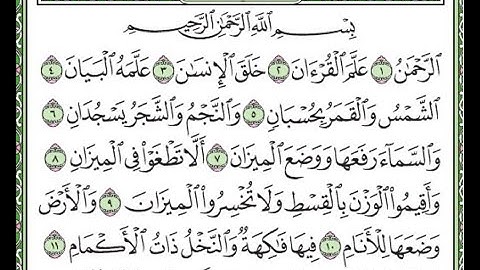 بِسْمِ اللَّهِ الرَّحْمَٰنِ الرَّحِيمِ
الرَّحْمَٰنُ ١ عَلَّمَ الْقُرْءَانَ ٢ خَلَقَ الْإِنسَٰنَ ٣ عَلَّمَهُ الْبَيَانَ ٤
الشَّمْسُ وَالْقَمَرُ بِحُسْبَانٍ ٥ وَالنَّجْمُ وَالشَّجَرُ يَسْجُدَانِ ٦
وَالسَّمَآءَ رَفَعَهَا وَوَضَعَ الْمِيزَانَ ٧ أَلَّا تَطْغَوْا۟ فِى الْمِيزَانِ ٨
وَأَقِيمُوا۟ الْوَزْنَ بِالْقِسْطِ وَلَا تُخْسِرُوا۟ الْمِيزَانَ ٩ وَالْأَرْضَ
وَضَعَهَا لِلْأَنَامِ ١٠ فِيهَا فَٰكِهَةٌ وَالنَّخْلُ ذَاتُ الْأَكْمَامِ ١١